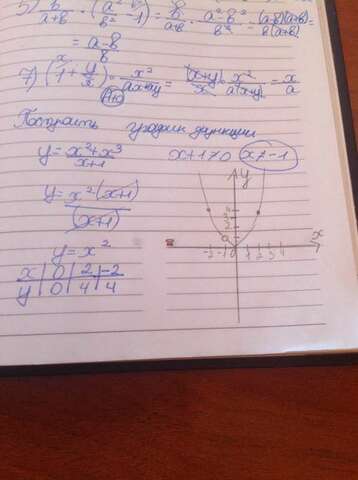 5) b/(a+b) · (a²/b² - 1) = b/(a+b) · (a²-b²)/b² = (a-b)(a+b)/b(a+b) =
= (a-b)/b
7) (1 + y/x) · x²/(ax+ay) = (x+y)/x · x²/a(x+y) = x/a
Построить график функции
y = (x²+x³)/(x+1) x+1≠0 x≠-1
y = x²(x+1)/(x+1)
y = x²
x | 0 | 2 | -2
y | 0 | 4 | 4
y
x
-2 -1 0 1 2 3 4